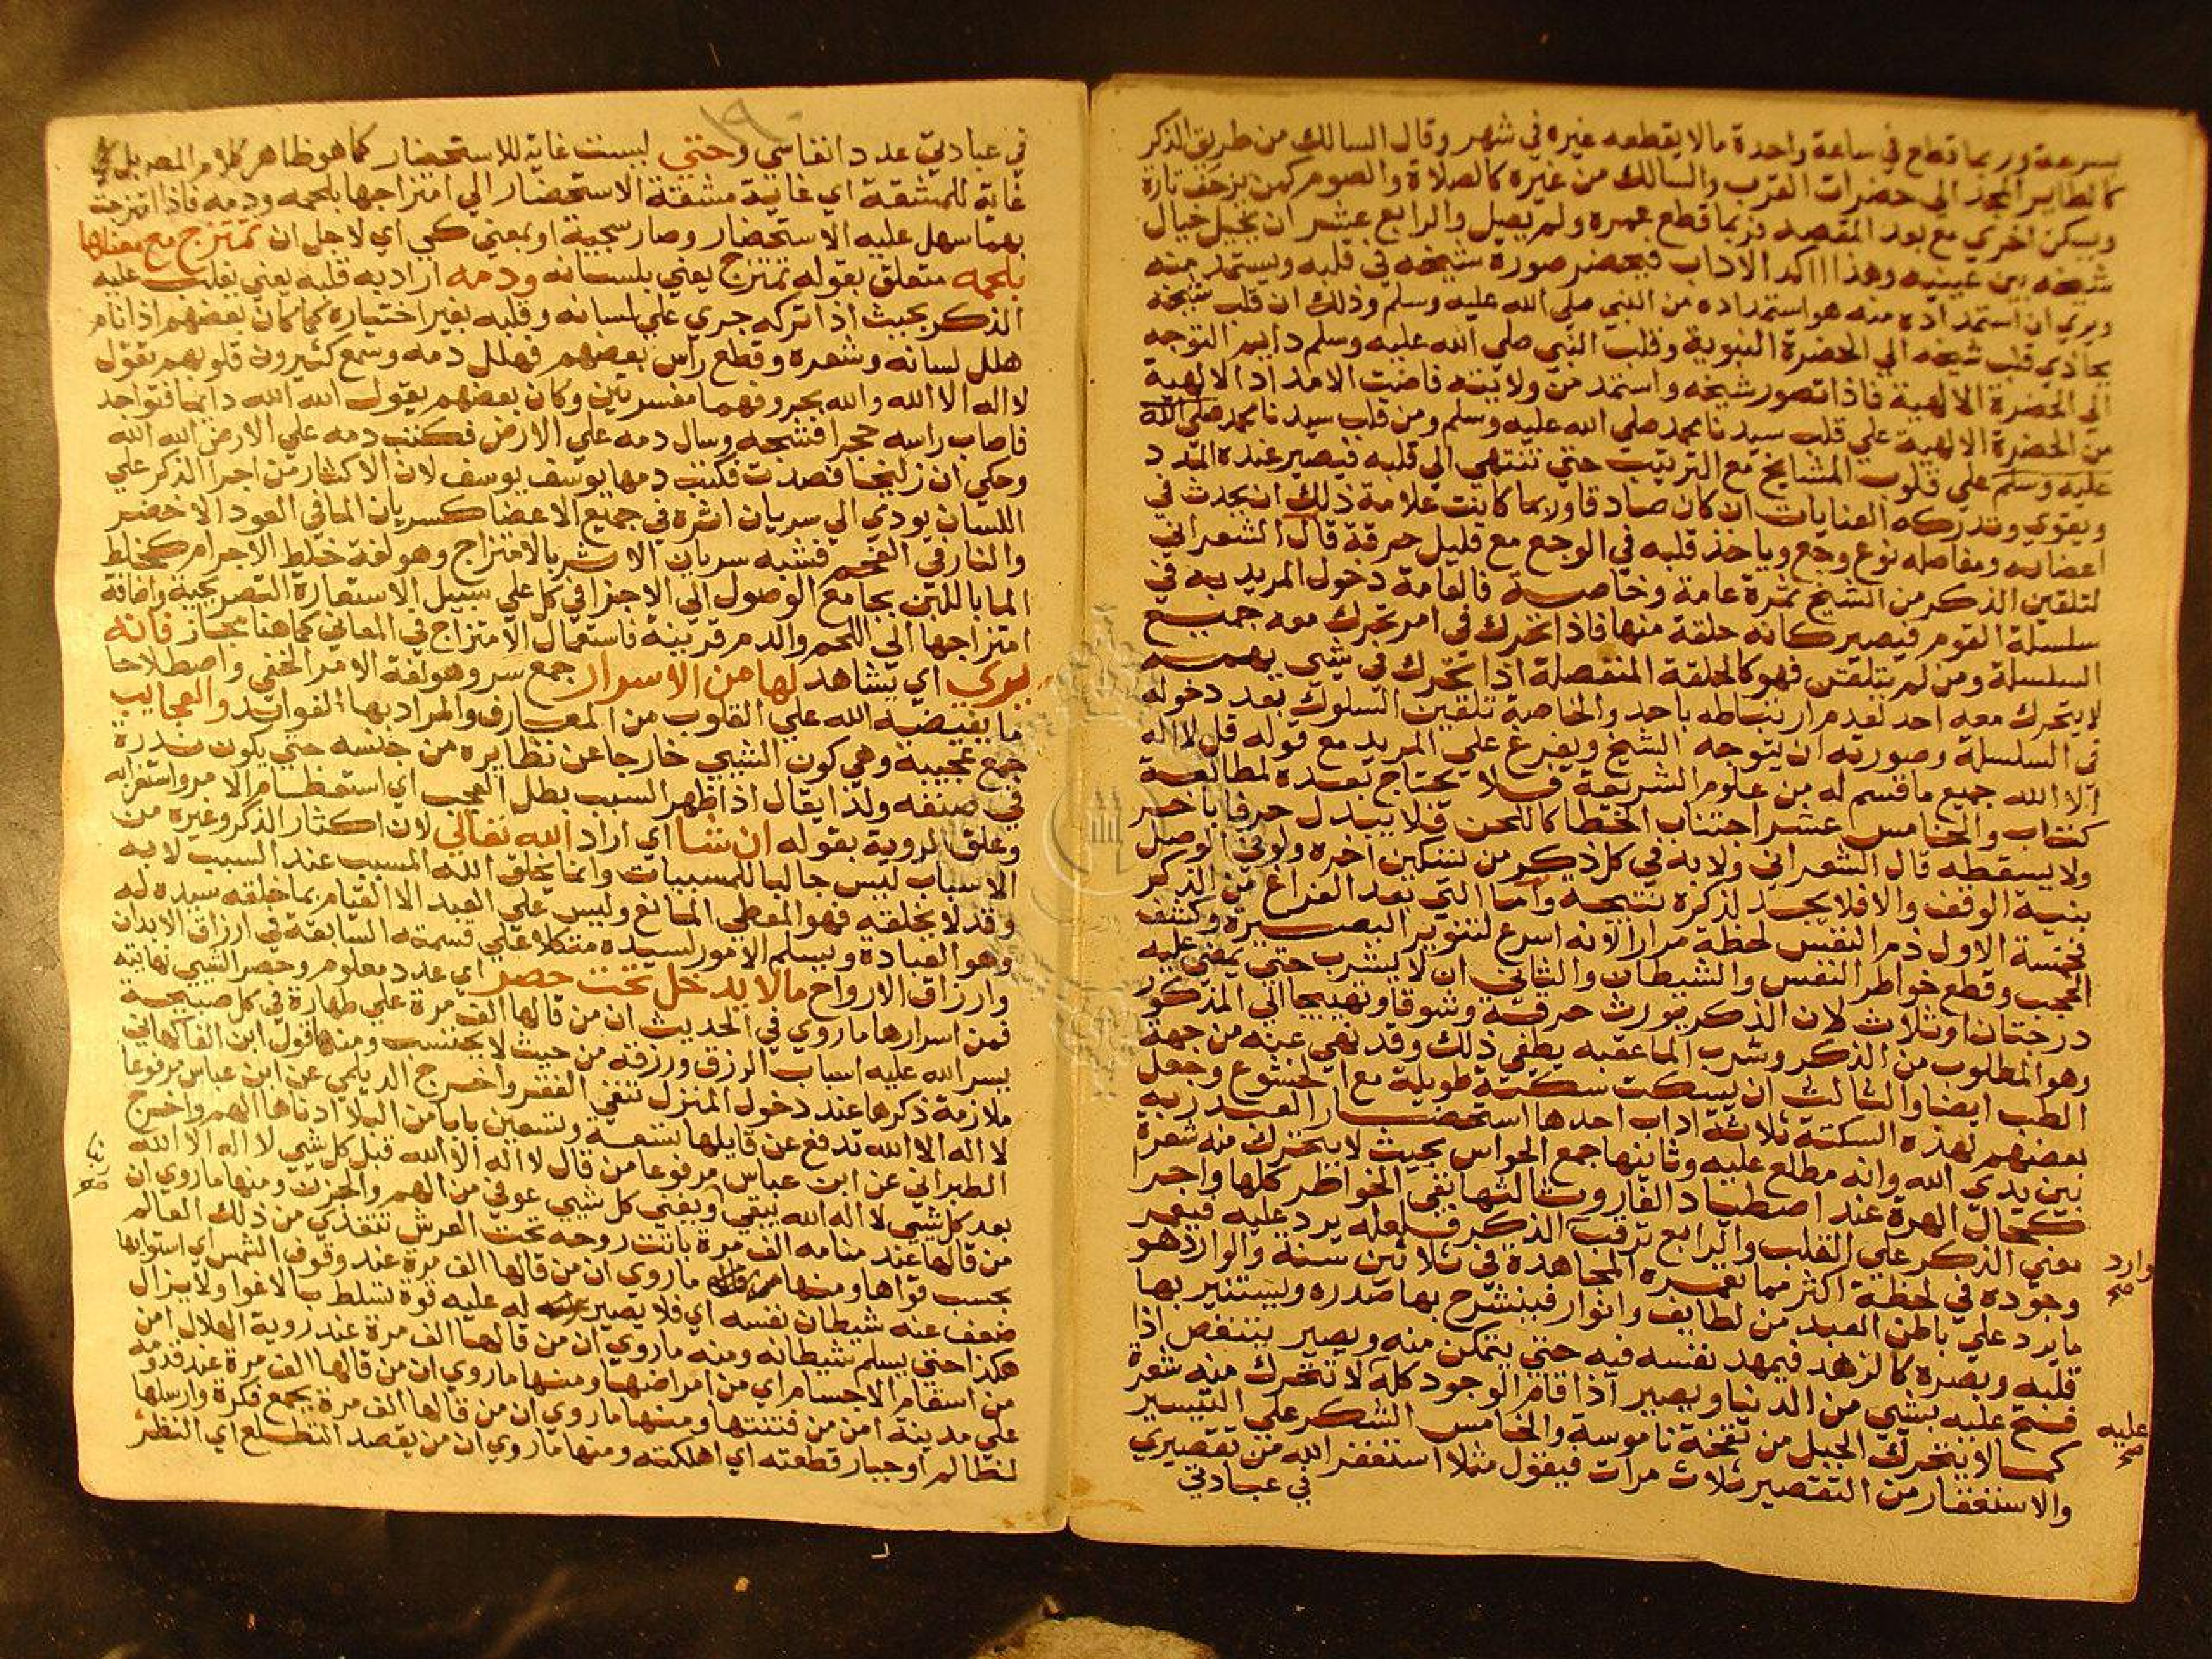 بسرعة وربما قطع في ساعة واحدة مالا يقطعه غيره في شهر وقال السالك من طريق الذكر
كالطاير المجد الي حضرات القرب والسالك من غيره كالصلاة والصوم كمن يزحف تارة
ويسكن اخري مع بعد المقصد فربما قطع عمره ولم يصل والرابع عشر ان يخيل خيال
شيخه بين عينيه وهذا اكد الاداب فيحضر صورة شيخه في قلبه ويستمد منه
ويري ان استمداده منه هو استمداده من النبي صلي الله عليه وسلم وذلك ان قلب شيخه
يحاذي قلب شيخه الي الحضرة النبوية وقلب النبي صلي الله عليه وسلم دايم التوجه
الي الحضرة الالهية فاذا تصور شيخه واستمد من ولايته فاضت الامداد الالهية
من الحضرة الالهية علي قلب سيدنا محمد صلي الله عليه وسلم ومن قلب سيدنا محمد صلي الله
عليه وسلم علي قلوب المشايخ مع الترتيب حتي تنتهي الي قلبه فيصير عنده المدد
ويقوي وتدركه العنايات ان كان صادقا وربما كانت علامة ذلك ان يحدث في
اعضايه ومفاصله نوع وجع وياخذ قلبه في الوجع مع قليل حرقة قال الشعراني
لتلقين الذكر من الشيخ ثمرة عامة وخاصة فالعامة دخول المريد به في
سلسلة القوم فيصير كانه حلقة منها فاذا تحرك في امر تحرك معه جميع
السلسلة ومن لم يتلقن فهو كالحلقة المنفصلة اذا تحرك في شي يهمه
لا يتحرك معه احد لعدم ارتباطه باحد والخاصة تلقين السلوك بعد دخوله
في السلسلة وصورته ان يتوجه الشيخ ويفرغ علي المريد مع قوله قل لا اله
الا الله جميع ما قسم له من علوم الشريعة فلا يحتاج بعده لمطالعة
كتاب والخامس عشر اجتناب الخطا كاللحن فلا يبدل حرفا باخر
ولا يسقطه قال الشعراني ولا بد في كل ذكر من تسكين اخره ولو في الوصل
بنية الوقف والا فلا يجد لذكره نتيجة واما التي بعد الفراغ من الذكر
فخمسة الاول ذم النفس لحظة مرارا لانه اسرع لتنوير البصيرة وكشف
الحجب وقطع خواطر النفس والشيطان والثاني ان لا يشرب حتي يمضي عليه
درجتان او ثلاث لان الذكر يورث حرقة وشوقا وتهييجا الي المذكور
وهو المطلوب من الذكر وشرب الما عقبه يطفي ذلك وقد نهي عنه من جهة
الطب ايضا والثالث ان يسكت سكتة طويلة مع الخشوع وجعل
بعضهم لهذه السكتة ثلاثة اداب احدها استحضار العبد ربه
بين يدي الله وانه مطلع عليه وثانيها جمع الحواس بحيث لا يتحرك منه شعرة
كحال الهرة عند اصطياد الفار وثالثها نفي الخواطر كلها واجرا
معني الذكر علي القلب والرابع ترقب الذكر فلعله يرد عليه فيعمر
وارد صح
وجوده في لحظة اكثر مما تعمره المجاهدة في ثلاثين سنة والوارد هو
ما يرد علي باطن العبد من لطايف وانوار فينشرح بها صدره ويستنير بها
قلبه وبصره كالزهد فيمهد نفسه فيه حتي يتمكن منه ويصير يتنغص اذا
فتح عليه بشي من الدنيا ويصير اذا قام الوجود كله لا تتحرك منه شعرة
عليه صح
كما لا يتحرك الجبل من نفخة ناموسة والخامس الشكر علي التيسير
والاستغفار من التقصير ثلاث مرات فيقول مثلا استغفر الله من تقصيري
في عبادتي
في عبادتي عدد انفاسي وحتي ليست غاية للاستحضار كما هو ظاهر كلام المص بل
غاية للمشقة اي غاية مشقة الاستحضار الي امتزاجها بلحمه ودمه فاذا امتزجت
بهما سهل عليه الاستحضار وصار سجية او بمعني كي اي لاجل ان تمتزج مع معناها
بلحمه متعلق بقوله تمتزج يعني بلسانه ودمه اراد به قلبه يعني يغلب عليه
الذكر بحيث اذا تركه جري علي لسانه وقلبه بغير اختياره كما كان بعضهم اذا نام
هلل لسانه وشعره وقطع راس بعضهم فهلل دمه وسمع كثيرون قلوبهم تقول
لا اله الا الله والله بحروفهما مفسرتين وكان بعضهم يقول الله الله دايما فتواجد
فاصاب راسه حجرا فشجه وسال دمه علي الارض فكتب دمه علي الارض الله الله
وحكي ان زليخا فصدت فكتب دمها يوسف يوسف لان الاكثار من اجرا الذكر علي
اللسان يودي الي سريان اثره في جميع الاعضا كسريان الما في العود الاخضر
والنار في الفحم فشبه سريان الاثر بالامتزاج وهو لغة خلط الاجرام كخلط
الما باللبن بجامع الوصول الي الاجزا في كل علي سبيل الاستعارة التصريحية واضافة
امتزاجها الي اللحم والدم قرينة فاستعمال الامتزاج في المعاني كما هنا مجاز فانه
يري اي يشاهد لها من الاسرار جمع سر وهو لغة الامر الخفي واصطلاحا
ما يفيضه الله علي القلوب من المعارف والمراد بها الفوائد والعجايب
جمع عجيبة وهي كون الشي خارجا عن نظايره من جنسه حتي يكون ندرة
في صنفه ولذا يقال اذا ظهر السبب بطل العجب اي استعظام الامر واستغرابه
وعلق الروية بقوله ان شا اي اراد الله تعالي لان اكثار الذكر وغيره من
الاسباب ليس جالبا للمسببات وانما يخلق الله المسبب عند السبب لا به
وقد لا يخلقه فهو المعطي المانع وليس علي العبد الا القيام بما خلقه سيده له
وهو العبادة ويسلم الامور لسيده متكلا علي قسمته السابقة في ارزاق الابدان
وارزاق الارواح مالا يدخل تحت حصر اي عدد معلوم وحصر الشي نهايته
فمن اسرارها ما روي في الحديث ان من قالها الف مرة علي طهارة في كل صبيحة
يسر الله عليه اسباب الرزق ورزقه من حيث لا يحتسب ومنها قول ابن الفاكهاني
ملازمة ذكرها عند دخول المنزل تنفي الفقر واخرج الديلمي عن ابن عباس مرفوعا
لا اله الا الله تدفع عن قايلها تسعة وتسعين بابا من البلا ادناها الهم واخرج
الطبراني عن ابن عباس مرفوعا من قال لا اله الا الله قبل كل شي لا اله الا الله
بعد كل شي لا اله الا الله يبقي ويفني كل شيي عوفي من الهم والحزن ومنها ما روي ان
من قالها عند منامه الف مرة باتت روحه تحت العرش تتغذي من ذلك العالم
بحسب قواها ومنها ما روي ان من قالها الف مرة عند وقوف الشمس اي استوايها
ضعف عنه شيطان نفسه اي فلا يصير له عليه قوة تسلط بالاغوا ولا يزال
هكذا حتي يسلم شيطانه ومنه ما روي ان من قالها الف مرة عند روية الهلال امن
من اسقام الاجسام اي من امراضها ومنها ما روي ان من قالها الف مرة عند قدومه
علي مدينة امن من فتنتها ومنها ما روي ان من قالها الف مرة بجمع فكرة وارسلها
لظالم او جبار قطعته اي اهلكته ومنها ما روي ان من يقصد التطلع اي النظر